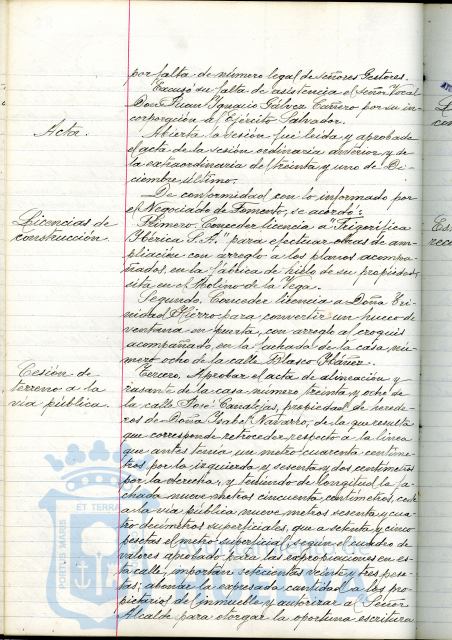 por falta de número legal de señores Gestores.
Excusó su falta de asistencia el señor Vocal
Don Juan Ignacio Gálvez Cañero por su in-
corporación al Ejército Salvador.
Acta.
Abierta la sesión fué leída y aprobada
el acta de la sesión ordinaria anterior y de
la extraordinaria del treinta y uno de Di-
ciembre último.
De conformidad con lo informado por
el Negociado de Fomento, se acordó:
Licencias de
construcción.
Primero. Conceder licencia a "Frigorífica
Ibérica S.A." para efectuar obras de am-
pliación con arreglo a los planos acompa-
ñados, en la fábrica de hielo de su propiedad,
sita en el Molino de la Vega.
Segundo. Conceder licencia a Doña Tri-
nidad Hierro para convertir un hueco de
ventana en puerta, con arreglo al croquis
acompañado, en la fachada de la casa nú-
mero ocho de la calle Blasco Ibáñez.
Cesión de
terreno a la
vía pública.
Tercero. Aprobar el acta de alineación y
rasante de la casa número treinta y ocho de
la calle José Canalejas, propiedad de herede-
ros de Doña Isabel Navarro, de la que resulta
que corresponde retroceder respecto a la línea
que antes tenía un metro cuarenta centíme-
tros por la izquierda y sesenta y dos centímetros
por la derecha, y teniendo de longitud la fa-
chada nueve metros cincuenta centímetros, cede
a la vía pública nueve metros sesenta y cua-
tro decímetros superficiales, que a setenta y cinco
pesetas el metro superficial, según el cuadro de
valores aprobado para las expropiaciones en es-
ta calle, importan setecientas veinte y tres pese-
tas; abonar la expresada cantidad a los pro-
pietarios del inmueble y autorizar al Señor
Alcalde para otorgar la oportuna escritura
PORTUS MARIS ET TERRAE